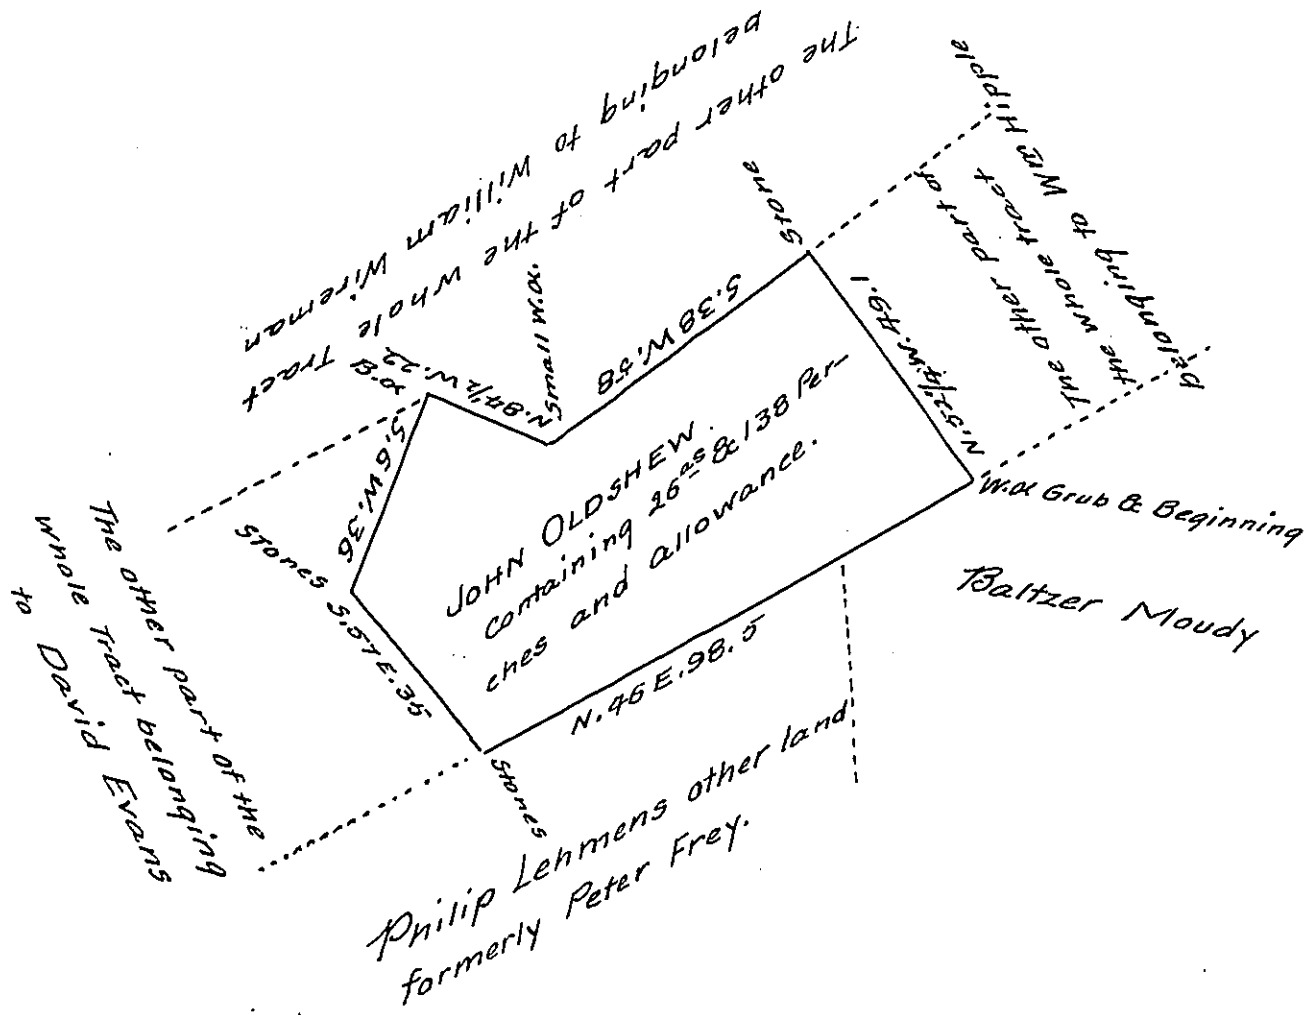 The other part of the whole Tract
belonging to William Wireman
The other part of
the whole tract
belonging to Wm Hipple
Stone
Small w.o.
B.o.
N.84½W.22
S.38W.58
N.52¼W.49.1
S.6W.36
Stones S.57E.35
N.46E.98.5
JOHN OLDSHEW.
Containing 26as & 138 Per-
ches and allowance.
W.o. Grub & Beginning
Baltzer Moudy
Stones
The other part of the
whole Tract belonging
to David Evans
Philip Lehmens other land
formerly Peter Frey.